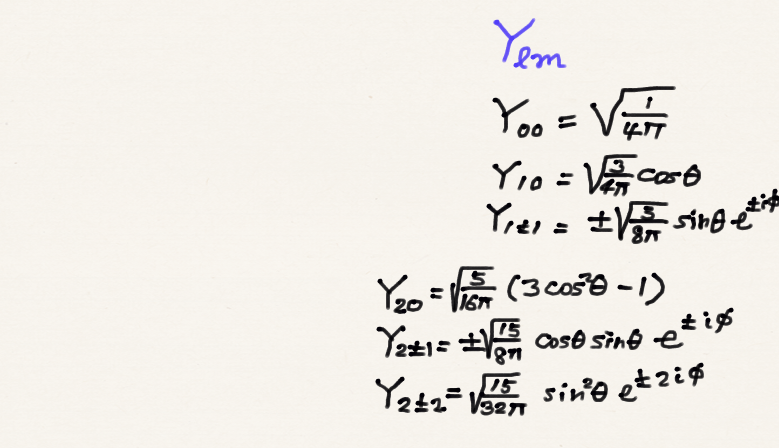 Yℓm
Y₀₀ = √(1/4π)
Y₁₀ = √(3/4π) cosθ
Y₁±₁ = ±√(3/8π) sinθ e^{±iφ}
Y₂₀ = √(5/16π) (3cos²θ − 1)
Y₂±₁ = ±√(15/8π) cosθ sinθ e^{±iφ}
Y₂±₂ = √(15/32π) sin²θ e^{±2iφ}